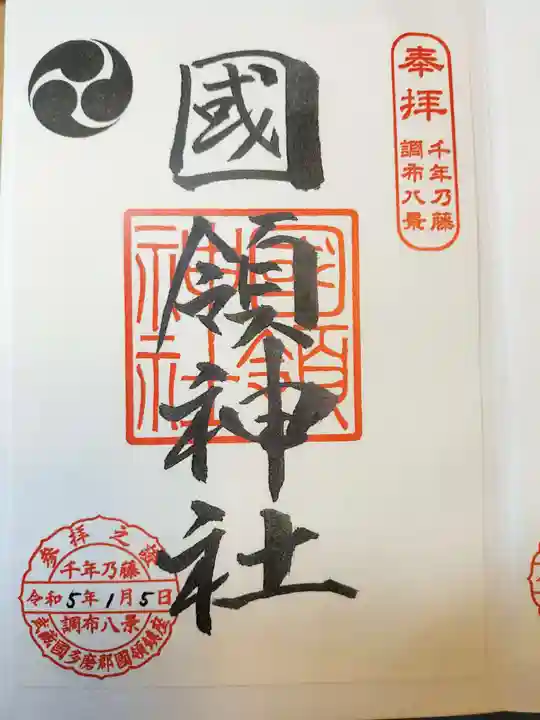 奉拝
千年乃藤
調布八景
國領神社
國領神社
参拝之證
千年乃藤
令和5年1月5日
調布八景
武蔵國多磨郡國領鎮座